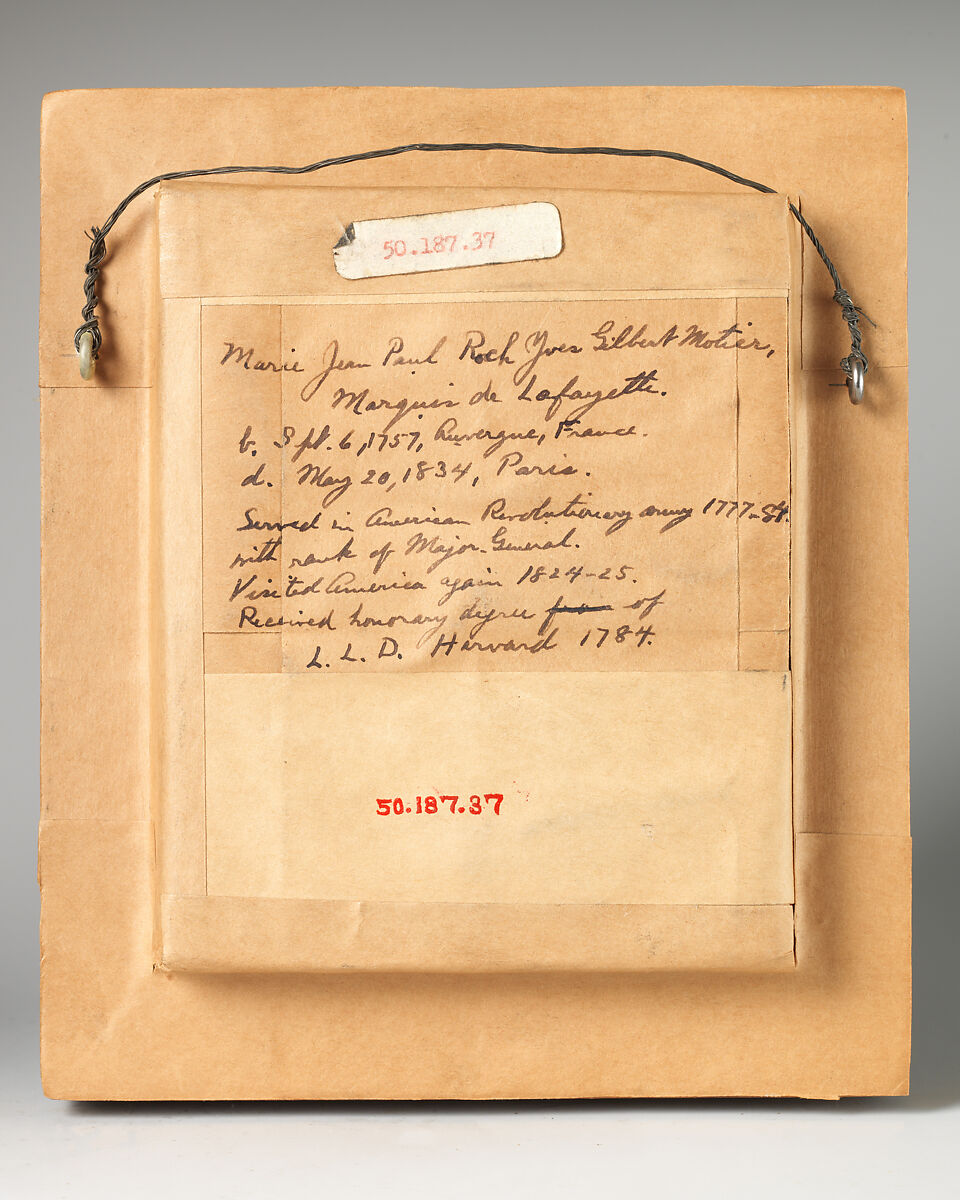 50.187.37
Marie Jean Paul Roch Yves Gilbert Motier,
Marquis de Lafayette.
b. Spt. 6, 1757, Auvergne, France.
d. May 20, 1834, Paris.
Served in American Revolutionary army 1777-84.
with rank of Major-General.
Visited America again 1824-25.
Received honorary degree of
L. L. D. Harvard 1784.
50.187.37